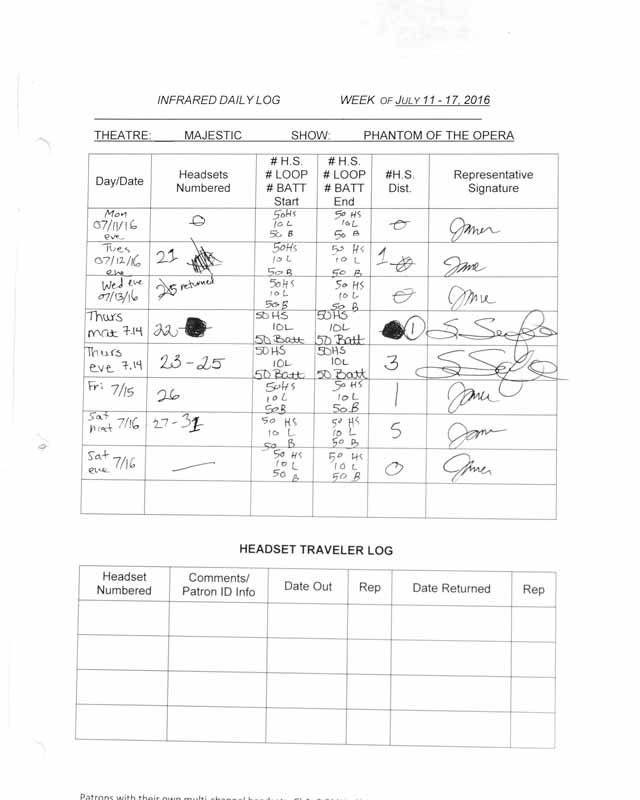 INFRARED DAILY LOG WEEK OF JULY 11 - 17, 2016
THEATRE: MAJESTIC SHOW: PHANTOM OF THE OPERA
Day/Date
Headsets
Numbered
# H.S.
# LOOP
# BATT
Start
# H.S.
# LOOP
# BATT
End
#H.S.
Dist.
Representative
Signature
Mon
07/11/16
eve
0
50HS
10L
50 B
50 HS
10L
50 B
0
Tues
07/12/16
eve
21
50HS
10 L
50 B
50 HS
10 L
50 B
1
Wed eve
07/13/16
25 returned
50HS
10 L
50 B
50 HS
10 L
50 B
0
Thurs
mat 7.14
22
50 HS
10L
50 Batt
50 HS
10L
50 Batt
1
Thurs
eve 7.14
23-25
50 HS
10L
50 Batt
50 HS
10L
50 Batt
3
Fri 7/15
26
50HS
10 L
50B
50 HS
10 L
50 B
1
Sat
mat 7/16
27-31
50 HS
10 L
50 B
50 HS
10 L
50 B
5
Sat
eve 7/16
—
50 HS
10 L
50 B
50 HS
10 L
50 B
0
HEADSET TRAVELER LOG
Headset
Numbered
Comments/
Patron ID Info
Date Out
Rep
Date Returned
Rep
Patrons with their own multi-channel headsets